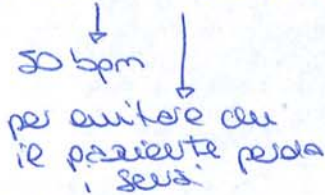 50 bpm
per evitare che
il paziente perda
i sensi